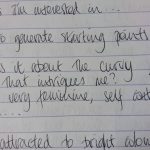 I'm interested in ...
to generate starting points
is it about the curvy
that intrigues me?
very feminine, self cont
....
attracted to bright colou